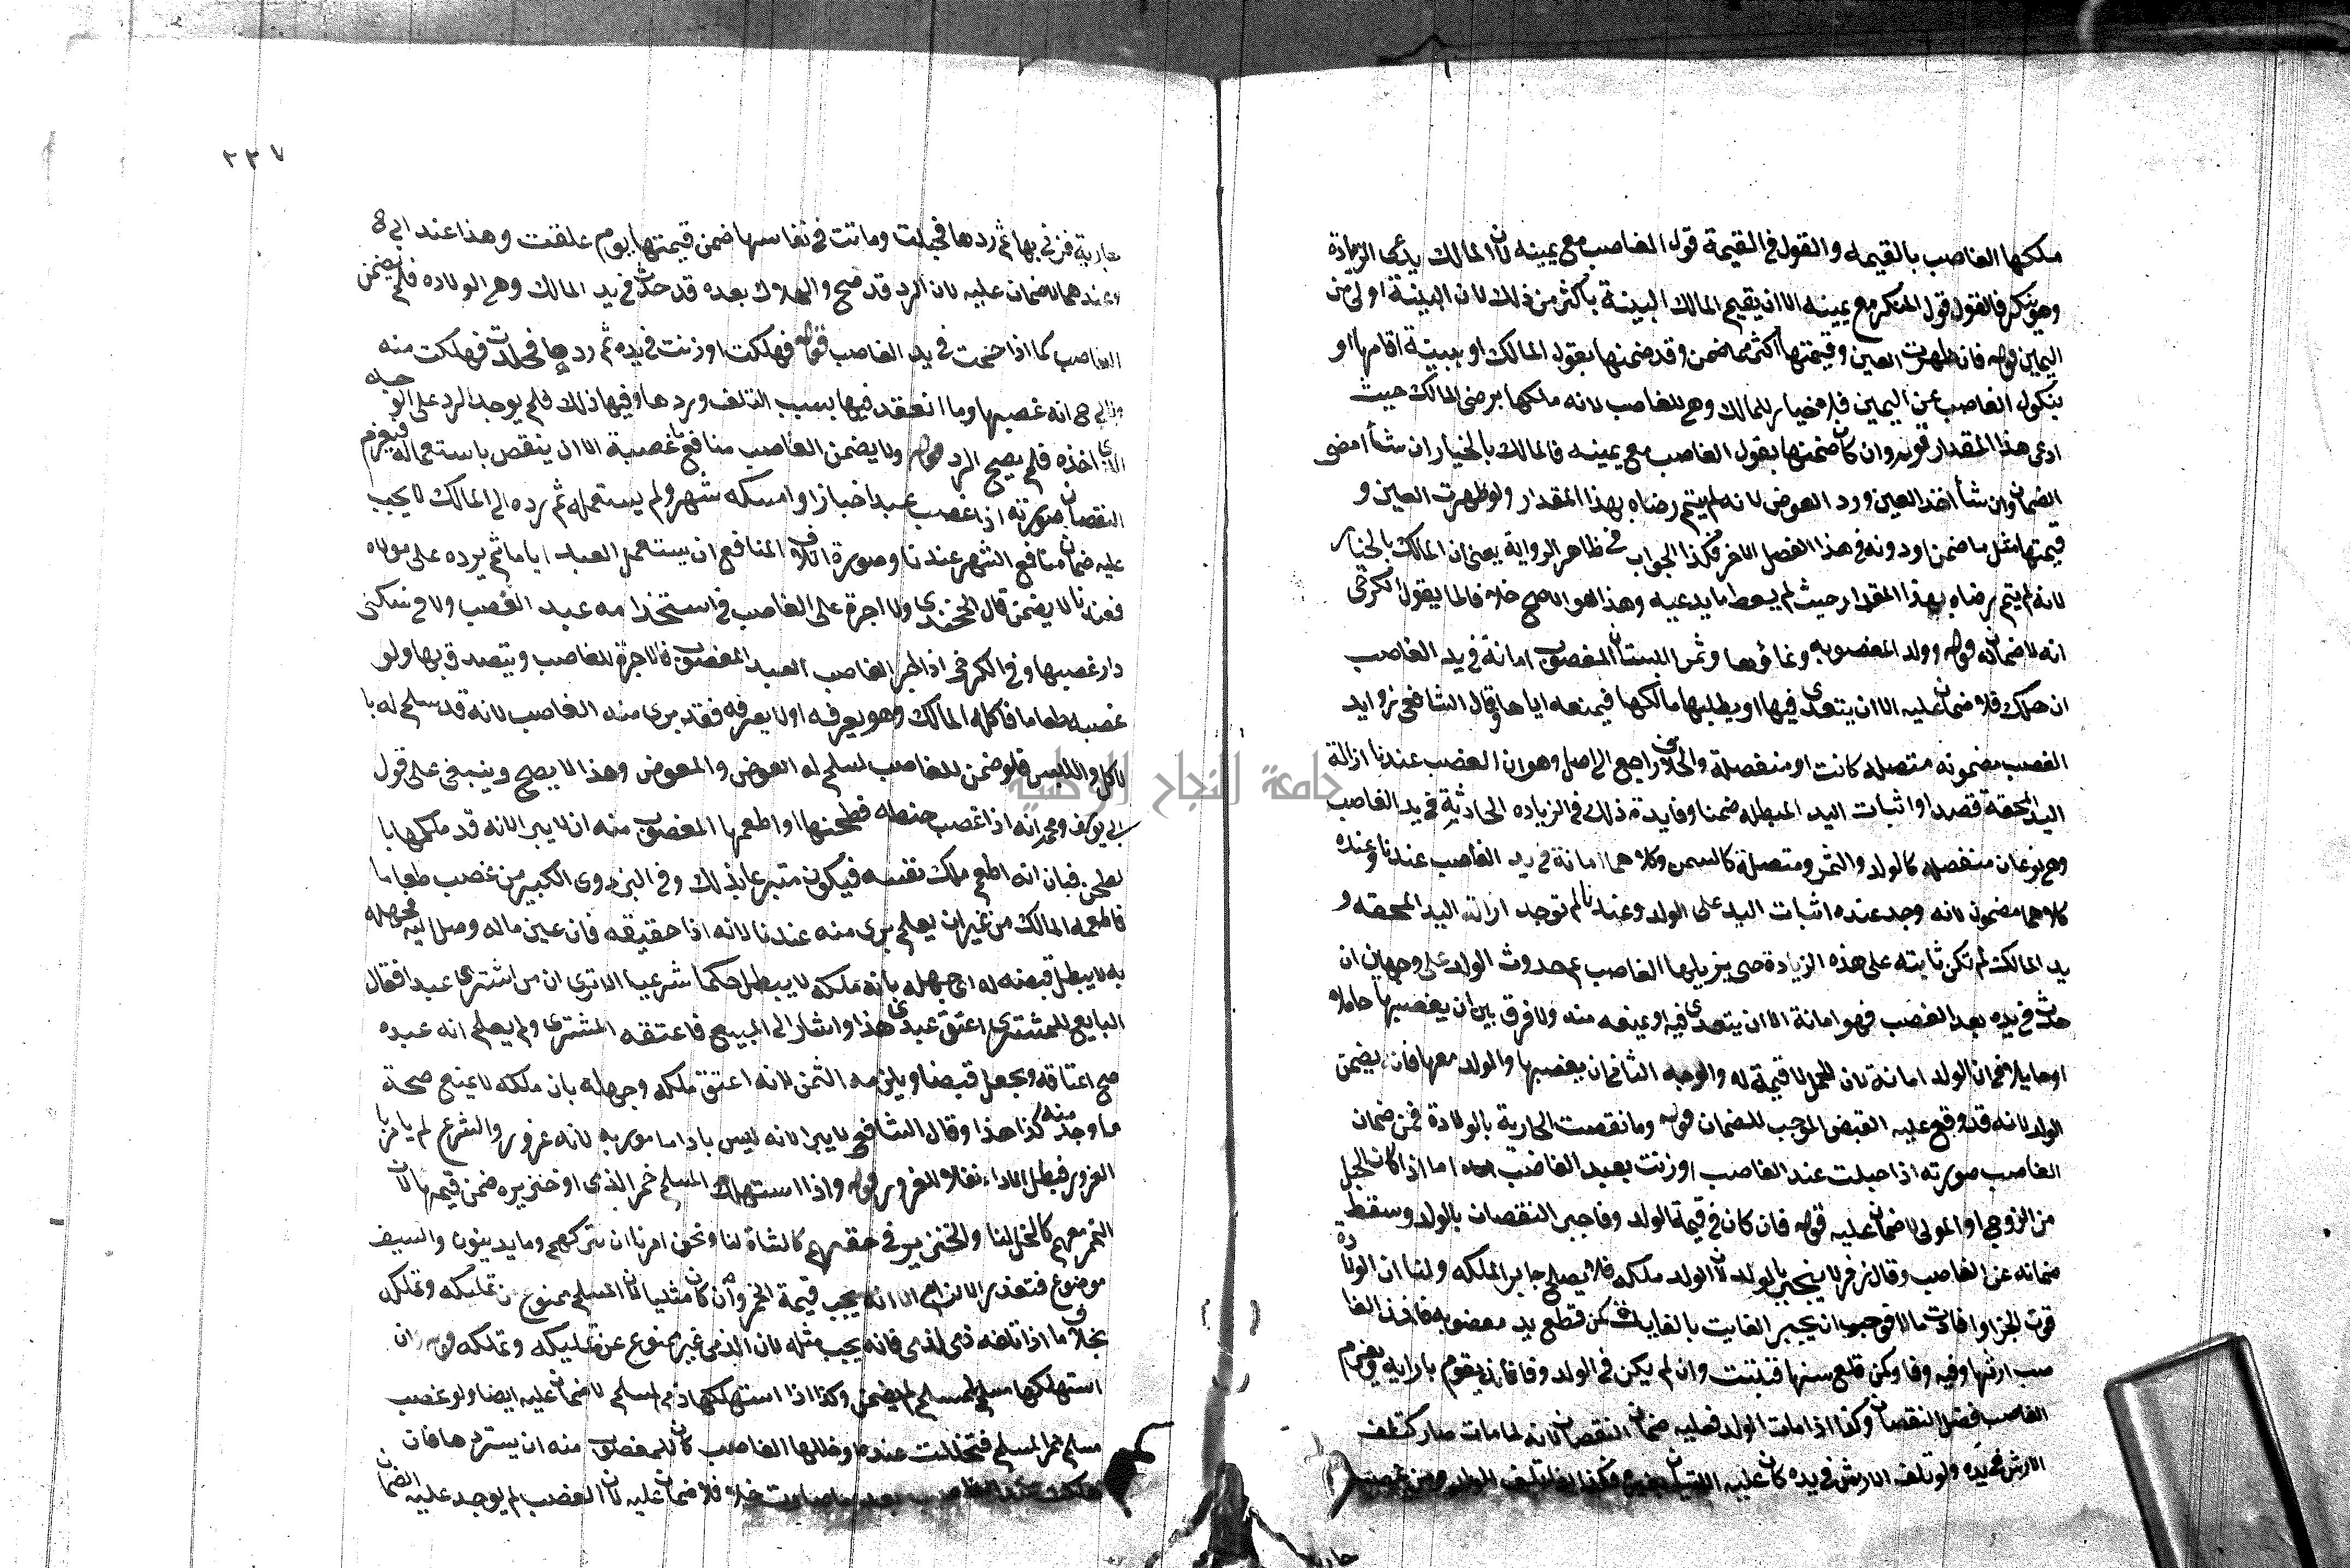 ملكها الغاصب بالقيمه والقول في القيمة قول الغاصب مع يمينه لان المالك يدعي الزيادة
وهو ينكر فالقول قول المنكر مع يمينه الا ان يقيم المالك البينة بأكثر من ذلك لان البينة اولى من
اليمين قوله فان ظهرت العين وقيمتها أكثر مما ضمن وقد ضمنها بقول المالك او ببينة اقامها او
بنكول الغاصب عن اليمين فلا خيار للمالك وهي للغاصب لانه ملكها برضى المالك حيث
ادعى هذا المقدار قوله وان كان ضمنها بقول الغاصب مع يمينه فالمالك بالخيار ان شأ امضى
الضمان وان شأ اخذ العين ورد العوض لانه لم يتم رضاه بهذا المقدار ولو ظهرت العين و
قيمتها مثل ما ضمن او دونه في هذا الفصل الاخر فكذا الجواب في ظاهر الرواية يعني ان المالك بالخيار
لانه لم يتم رضاه بهذا المقدار حيث لم يعط ما يدعيه وهذا هو الاصح خلافا لما يقول الكرخي
انه لا ضمان قوله وولد المغصوبه ونماؤها وثمر البستان المغصوب امانة في يد الغاصب
ان هلك فلا ضمان عليه الا ان يتعدى فيها او يطلبها مالكها فيمنعه اياها وقال الشافعي زوايد
الغصب مضمونه متصله كانت او منفصلة والخلاف راجع الى اصل وهو ان الغصب عندنا ازالة
اليد المحقة قصدا واثبات اليد المبطله ضمنا وفايدة ذلك في الزياده الحادثة في يد الغاصب
وهي نوعان منفصله كالولد والثمر ومتصلة كالسمن وكلاهما امانة في يد الغاصب عندنا وعنده
كلاهما مضمون لانه وجد عنده اثبات اليد على الولد وعندنا لم توجد ازالة اليد المحقه و
يد المالك لم تكن ثابته على هذه الزيادة حتى يزيلها الغاصب ثم حدوث الولد على وجهين ان
حدث في يده بعد الغصب فهو امانة الا ان يتعدى فيه او يمنعه منه ولا فرق بين ان يغصبها حاملا
او حايلا في ان الولد امانة لان الحمل لا قيمة له والوجه الثاني ان يغصبها والولد معها فانه يضمن
الولد لانه قد وقع عليه القبض الموجب للضمان قوله وما نقصت الجارية بالولادة فمن ضمان
الغاصب صورته اذا حبلت عند الغاصب او زنت بعبد الغاصب اما اذا كان الحبل
من الزوج او المولى لا ضمان عليه قوله فان كان في قيمة الولد وفا جبر النقصان بالولد وسقط
ضمانه عن الغاصب وقال زفر لا ينجبر بالولد لان الولد ملكه فلا يصلح جابر الملكه ولنا ان الولادة
فوتت الجزا وافادت مالا فوجب ان يجبر الفايت بالفايدة كمن قطع يد مغصوبه فاخذ الغا
صب ارشها وفيه وفا وكمن قلع سنها فنبتت وان لم يكن في الولد وفا
الغاصب فضل النقصان وكذا اذا مات الولد فعليه ضمان النقصان لانه لما مات صار كتلف
الارش في يده ولو تلف الارش في يده كان عليه
٢٢٧
جارية فزنى بها ثم ردها فحبلت وماتت في نفاسها ضمن قيمتها يوم علقت وهذا عند ابي ح
وعندهما لا ضمان عليه لان الرد قد صح والهلاك بعده قد حدث في يد المالك وهو الولاده فلم يضمن
الغاصب كما اذا حمت في يد الغاصب قوله فهلكت او زنت في يده ثم ردها فجلدت فهلكت منه
ولابي ح انه غصبها وما انعقد فيها بسبب التلف وردها وفيها ذلك فلم يوجد الرد على الوجه
الذي اخذه فلم يصح الرد قوله ولا يضمن الغاصب منافع ما غصبة الا ان ينقص باستعماله فيغرم
النقصان صورته اذا غصب عبدا خبازا وامسكه شهرا ولم يستعمله ثم رده الى المالك لا يجب
عليه ضمان منافع الشهر عندنا وصورة اتلاف المنافع ان يستعمل العبد اياما ثم يرده على مولاه
فعندنا لا يضمن قال الخجندي ولا اجرة على الغاصب في استخدامه عبد الغصب ولا في سكنى
دار غصبها وفي الكرخي اذا اجر الغاصب العبد المغصوب فالاجرة للغاصب ويتصدق بها ولو
غصبه طعاما فاكله المالك وهو يعرفه او لا يعرفه فقد برى منه الغاصب لانه قد سلم له با
لاكل واللبس فلو ضمن للغاصب لسلم له العوض والمعوض وهذا لا يصح وينبغي على قول
ابي يوسف ومحمد انه اذا غصب حنطه فطحنها او اطعمها المغصوب منه ان لا يبرا لانه قد ملكها با
لطحن فبان انه اطعم ملك نفسه فيكون متبرعا بذلك وفي البزدوي الكبير من غصب طعاما
فاطعمه المالك من غير ان يعلم برى منه عندنا لانه اذا حقيقه فان عين ماله وصل اليه فجهله
به لا يبطل قبضه له اي جهله بانه ملكه لا يبطل حكما شرعيا الا ترى ان من اشترى عبدا فقال
البايع للمشتري اعتق عبدي هذا واشار الى المبيع فاعتقه المشتري ولم يعلم انه عبده
صح اعتاقه ويجعل قبضا ويلزمه الثمن لانه اعتق ملكه وجهله بان ملكه لا يمنع صحة
ما وجد منه كذا هذا وقال الشافعي لا يبرا لانه ليس باداما مور به لانه غرور والشرع لم يامر با
لغرور فبطل الاداء نفيا للغرور قوله واذا استهلك المسلم خمر الذمي او خنزيره ضمن قيمتها لان
الخمر معهم كالخل لنا والخنزير في حقهم كالشاة لنا ونحن امرنا ان نتركهم وما يدينون والسيف
موضوع فتعذر الالزام الا انه يجب قيمة الخمر وان كان مثليا لان المسلم ممنوع من تمليكه وتملكه
بخلاف ما اذا اتلفه ذمي لذمي فانه يجب مثله لان الذمي غير ممنوع عن تمليكه وتملكه قوله وان
استهلكها مسلم لمسلم لم يضمن وكذا اذا استهلكها ذمي لمسلم لا ضمان عليه ايضا ولو غصب
مسلم خمرا لمسلم فتخللت عنده او خللها الغاصب كان للمغصوب منه ان يستردها فان
هلكت عند الغاصب بعد ما صارت خلا فلا ضمان عليه لان الغصب لم يوجد عليه الضمان
جامعة النجاح الوطنية